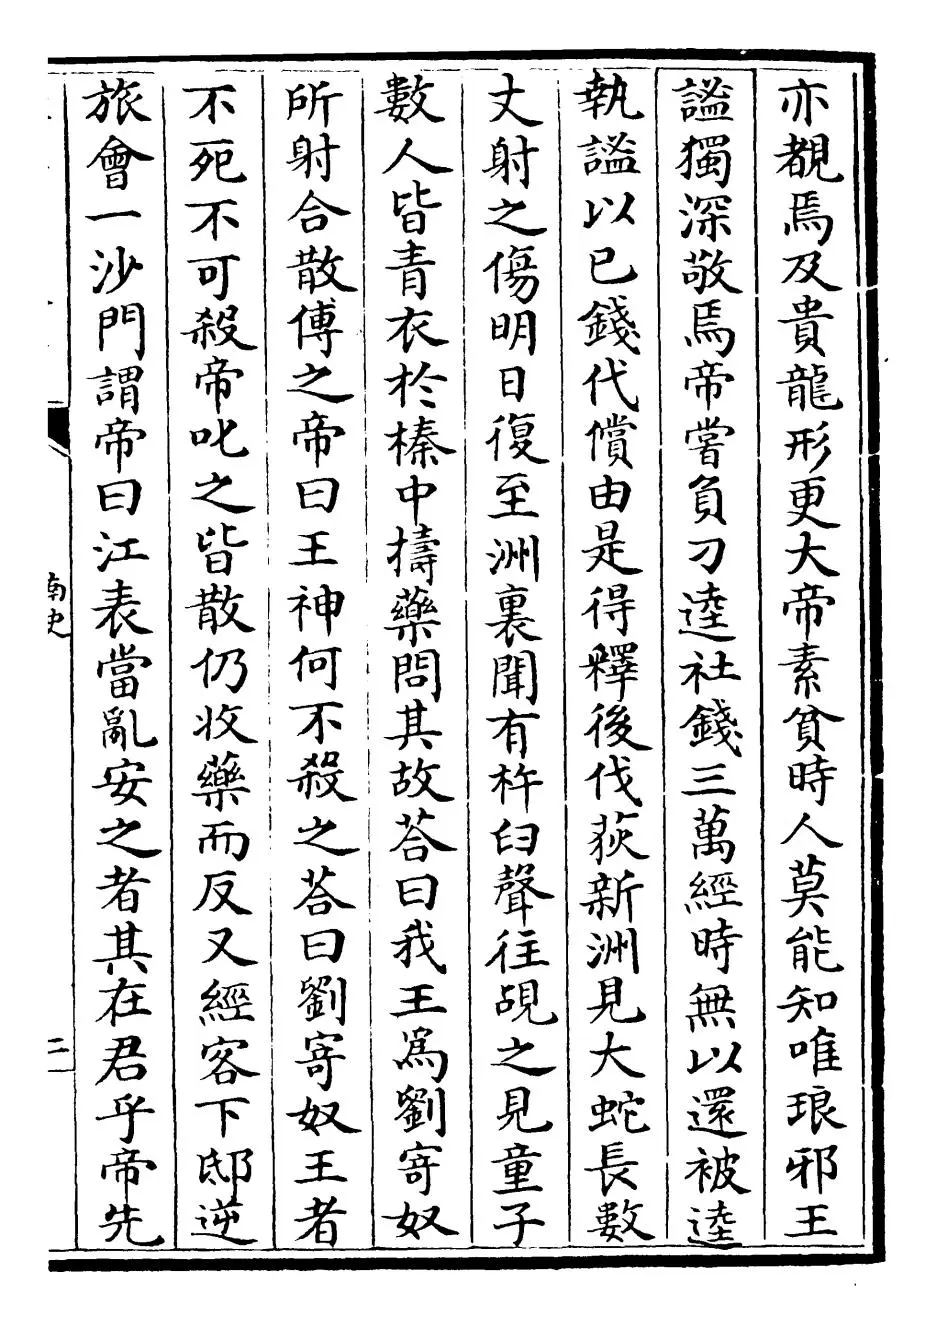 亦覩焉及貴龍形更大帝素貧時人莫能知唯琅邪王
謐獨深敬焉帝嘗負刁逵社錢三萬經時無以還被逵
執謐以已錢代償由是得釋後伐荻新洲見大蛇長數
丈射之傷明日復至洲裏聞有杵臼聲往覘之見童子
數人皆青衣於榛中擣藥問其故荅曰我王爲劉寄奴
所射合散傅之帝曰王神何不殺之荅曰劉寄奴王者
不死不可殺帝叱之皆散仍收藥而反又經客下邳逆
旅會一沙門謂帝曰江表當亂安之者其在君乎帝先
南史
二